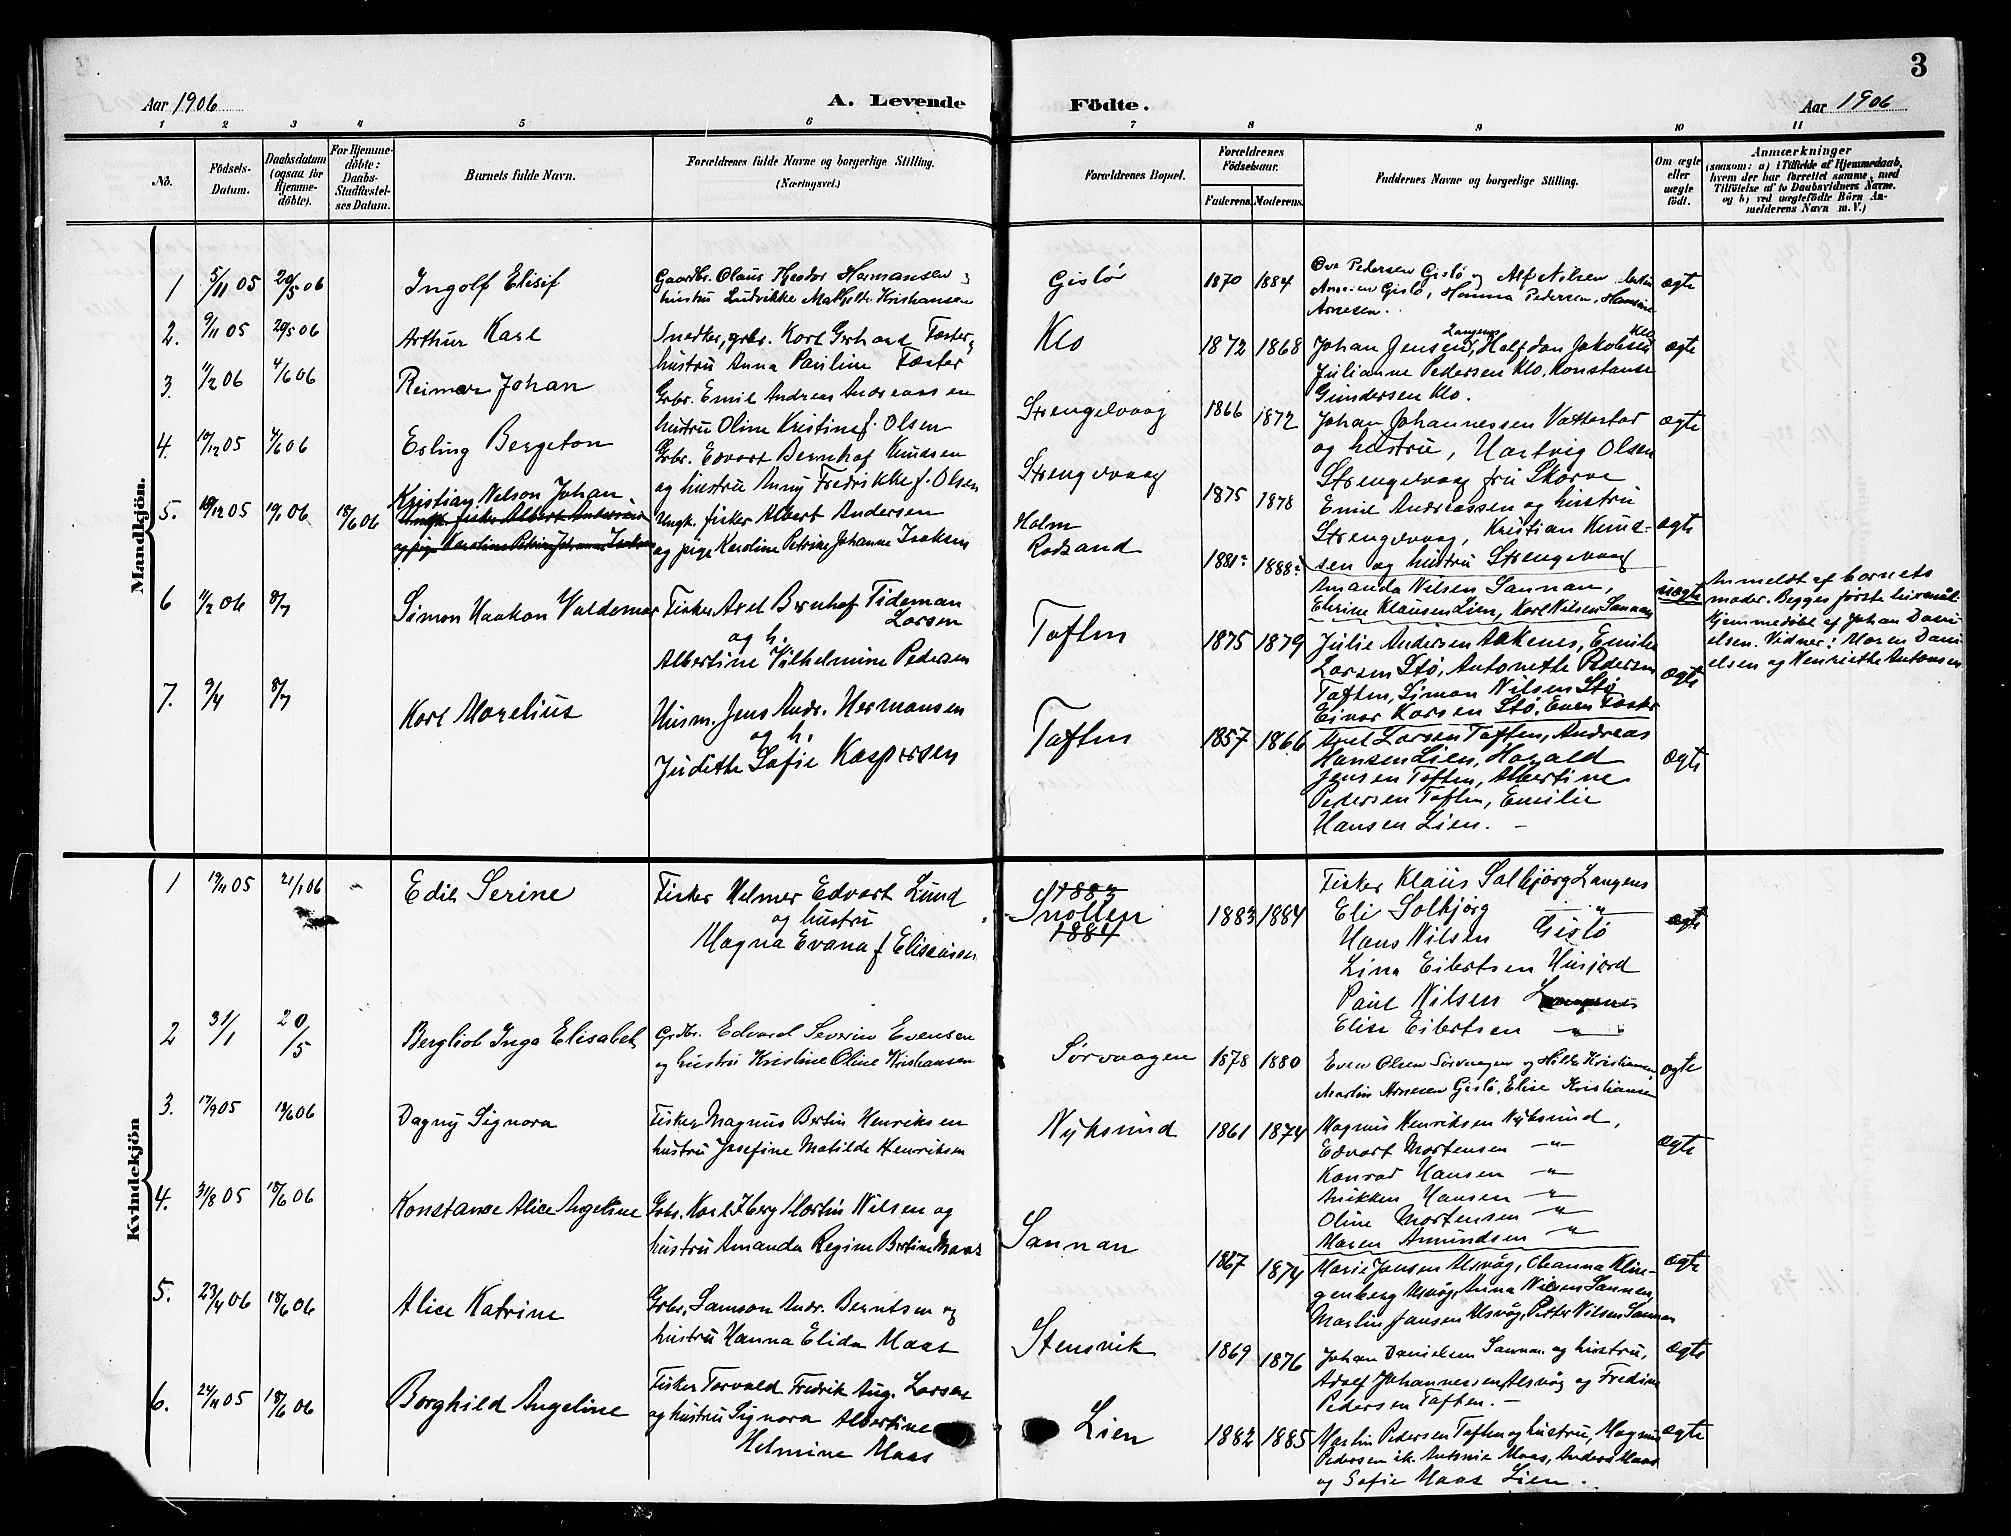 3
Aar 1906
A. Levende Födte.
Aar 1906
1 2 3 4 5 6 7 8 9 10 11
No.
Födsels-Datum.
Daabsdatum (ogsaa for Hjemmedöbte).
For Hjemmedöbte: Daabs-Stadfæstelses Datum.
Barnets fulde Navn.
Forældrenes fulde Navne og borgerlige Stilling.
(Næringsvei.)
Forældrenes Bopæl.
Forældrenes Födselsaar.
Faderens. Moderens.
Faddernes Navne og borgerlige Stilling.
Om ægte eller uægte födt.
Anmærkninger
(saasom: a) i Tilfælde af Hjemmedaab, hvem der har forrettet samme, med Tilföielse af to Daabsvidners Navne. og b) ved uægtefödte Börn Anmelderens Navn m.V.)
Mandkjön.
1 5/11 05 20/5 06 Ingolf Elisif
Gaardbr. Olaus Theodor Hermansen
hustru Ludvikke Mathilde Kristiansen
Gislø 1870 1884
Ove Pedersen Gislø og Alf Nilsen
Gislø, Homma Pedersen, Hansine
Arnesen.
ægte
2. 9/11 05 20/5 06 Arthur Karl
Snedker, grbr. Karl Gerhard Tøster
hustru Anna Pauline Tøster
Klo 1872 1868
Johan Jensen Langenes, Halfdan Jakobsen Klo
Julianne Pedersen Klo, Konstanse
Gundersen Klo.
ægte
3. 11/2 06 4/6 06 Reimar Johan
Grbr. Emil Andreas Andreassen
hustru Oline Kristine f. Olsen
Strengelvaag 1866 1872
Johan Johannessen Vottestad
og hustru, Hartvig Olsen
Strengelvaag fru Skorve
ægte
4. 10/12 05 4/6 06 Erling Bergeton
Grbr. Edvart Bernhof Knudsen
og hustru Anny Fredrikke f. Olsen
Strengelvaag 1875 1878
Emil Andreassen og hustru
Strengelvaag, Kristian Knud-
sen og hustru Strengelvaag
ægte
5. 10/12 05 19/1 06 18/6 06 Kristian Nelson Johan
Ungk. fisker Albert Andersen
og pige Karoline Petrine Johanne Isaksen
Ungk. fisker Albert Andersen
og pige Karoline Petrine Johanne Isaksen
Holm
Rødsand
1881 1888
Amanda Nilsen Sannan,
Elvine Klausen Lien, Karl Nilsen Sannan
uægte
Anmeldt af barnets
moder. Begges første leiermål.
Hjemmedøbt af Johan Dani
elsen. Vidner: Maren Dani
elsen og Henriette Antonsen
6 11/2 06 8/7 Simon Haakon Valdemar
Fisker Axel Bernhof Tideman
Larsen
og h.
Albertine Vilhelmine Pedersen
Toften 1875 1879
Julie Andersen Aakenes, Emilie
Larsen Stø, Antonette Pedersen
Toften, Simon Nilsen Stø
Einar Karsen Stø, Even Toster
ægte
7. 9/4 8/7 Karl Marelius
Husm. Jens Andr. Hermansen
og h.
Judithe Sofie Kaspersen
Toften 1857 1866
Axel Larsen Toften, Andreas
Hansen Lien, Harald
Jensen Toften, Albertine
Pedersen Toften, Emilie
Hansen Lien. –
ægte
Kvindekjön
1 19/11 05 21/1 06 – Edil Serine
Fisker Helmer Edvart Lund
og hustru
Magna Evana f Eliseussen
1883
Smollen
1884
1883 1884
Fisker Klaus Solbjørg Langenes
Eli Solbjørg –"–
Hans Nilsen Gislø
Lina Eibertsen Husjord
Paul Nilsen Langenes
Elise Eibertsen –"–
ægte
2 31/1 20/5 Bergliot Inga Elisabet
Grdbr. Edvard Severin Evensen
og hustru Kristine Oline Kristiansen
Sørvaagen 1878 1880
Even Olsen Sørvaagen og Hilda Kristiansen
Martin Arnesen Gislø, Elise Kristiansen
ægte
3. 17/9 05 18/6 06 Dagny Signora
Fisker Magnus Bertin Henriksen
hustru Josefine Matilde Henriksen
Nyksund 1861 1874
Magnus Henriksen Nyksund,
Edvart Mortensen –"–
Konrad Hansen –"–
Anikken Hansen –"–
Oline Mortensen –"–
Maren Amundsen –"–
ægte
4. 31/8 05 18/6 06 Konstanse Alice Angeline
Grbr. Karl Iberg Martin Nilsen og
hustru Amanda Regine Bertine Maas
Sannan 1867 1874
Marie Jansen Alsvåg, Ohanna Klin-
genberg Alsvåg, Anna Nilsen Sannan,
Martin Jansen Alsvåg, Petter Nilsen Sannan
ægte
5. 23/4 06 18/6 06 Alice Katrine
Grbr. Samson Andr. Berntsen og
hustru Hanna Elida Maas
Stensvik 1869 1876
Johan Danielsen Sannan og hustru,
Adolf Johannessen Alsvåg og Fredine
Pedersen Toften. –
ægte
6. 24/11 05 18/6 06 Borghild Angeline
Fisker Torvald Fredrik Aug. Larsen
og hustru Signora Albertine
Helmine Maas
Lien 1882 1885
Martin Pedersen Toften og hustru, Magnus
Pedersen ik. Antonie Maas, Anders Maas
og Sofie Maas Lien.
ægte